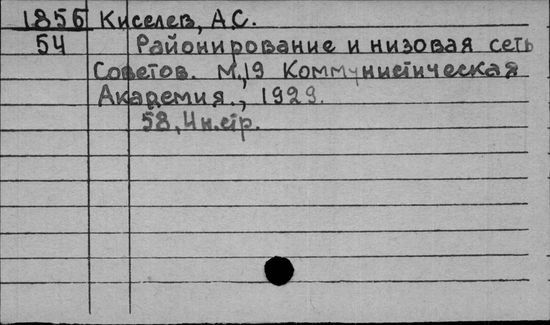 1856 Киселев, А.С.
54 Районирование и низовая сеть
Советов. М.,19 Коммунистическая
Академия., 1929.
58,4н.стр.